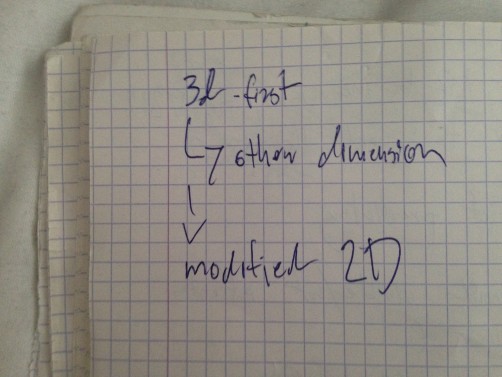 3d-first
↳ other dimension
↓
modified 2D